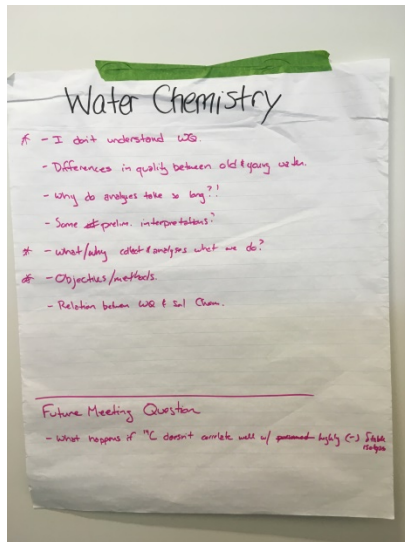 Water Chemistry
* - I don't understand WQ.
- Differences in quality between old & young water.
- Why do analyses take so long?!
- Some prelim. interpretations?
* - What/why collect & analyses what we do?
* - Objectives/methods.
- Relation between WQ & Chem.
Future Meeting Question
- What happens if 14C doesn't correlate well w/ highly (-) stable
isotope